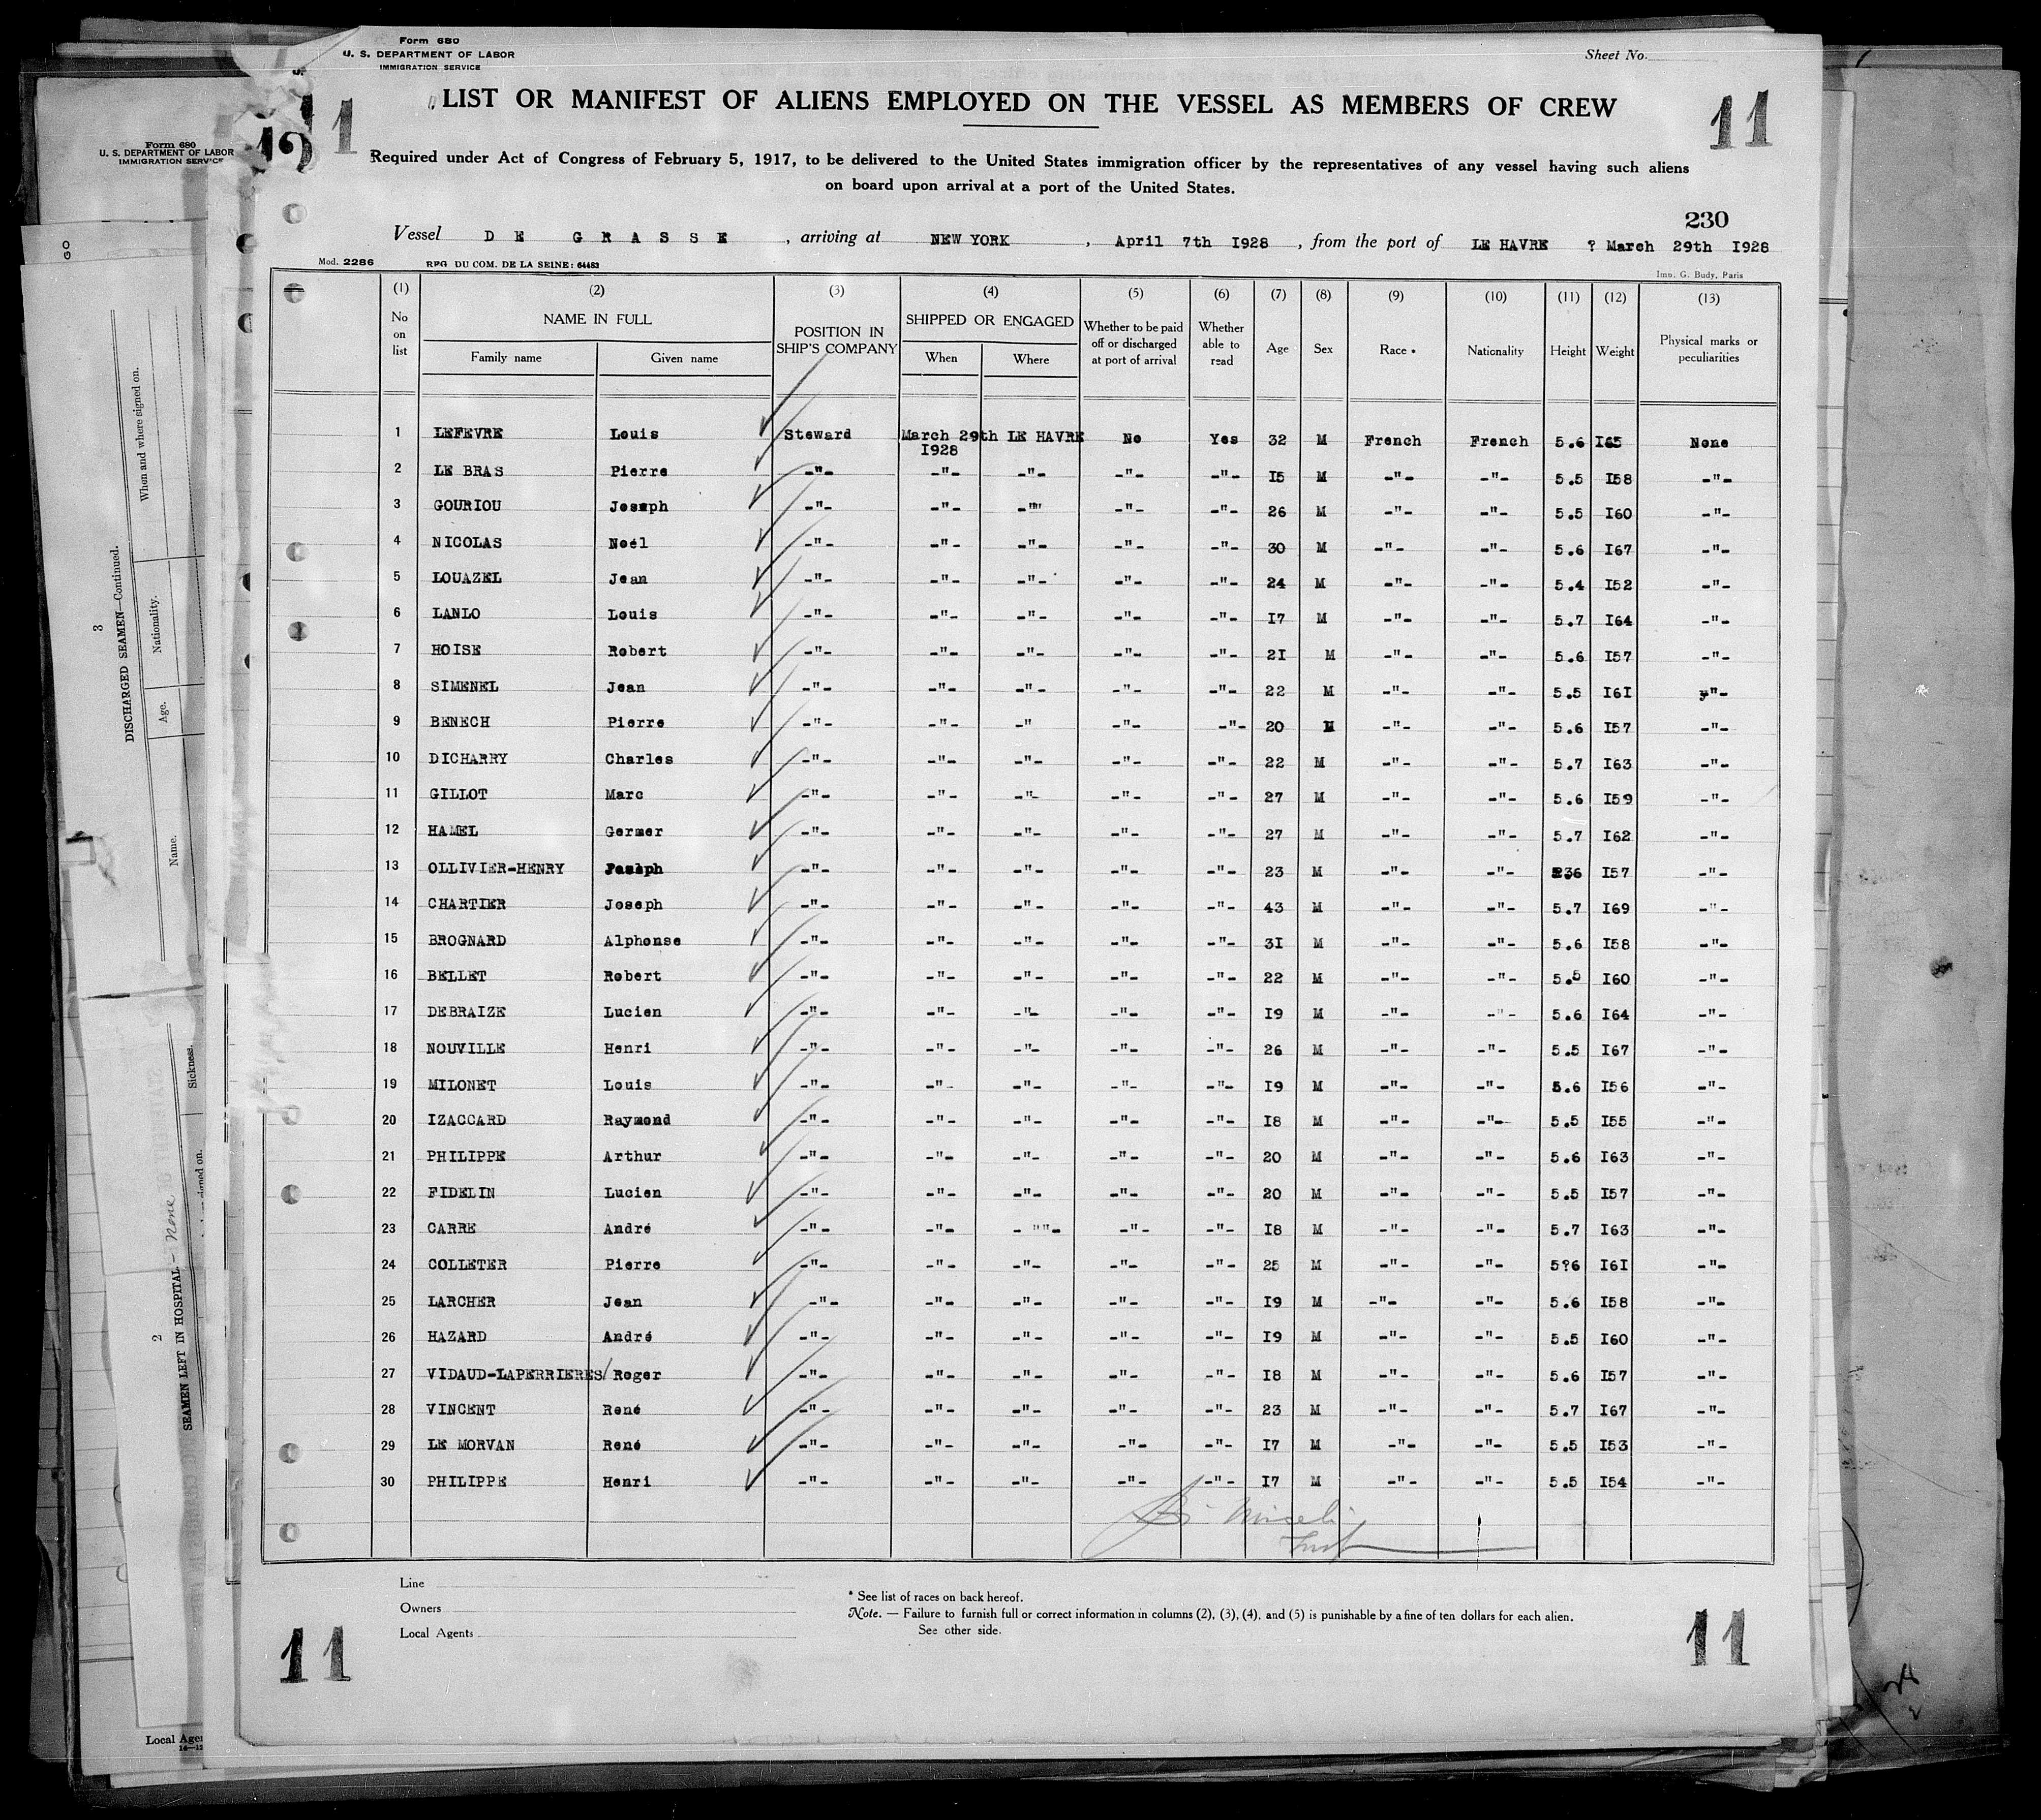 Form 680
U. S. DEPARTMENT OF LABOR
IMMIGRATION SERVICE
Sheet No.
LIST OR MANIFEST OF ALIENS EMPLOYED ON THE VESSEL AS MEMBERS OF CREW
11
11
Form 680
U. S. DEPARTMENT OF LABOR
IMMIGRATION SERVICE
Required under Act of Congress of February 5, 1917, to be delivered to the United States immigration officer by the representatives of any vessel having such aliens
on board upon arrival at a port of the United States.
230
Vessel DE GRASSE, arriving at NEW YORK, April 7th I928, from the port of LE HAVRE ? March 29th I928
Mod. 2286 RPG DU COM. DE LA SEINE: 64483 Imp. G. Budy, Paris
(1) (2) (3) (4) (5) (6) (7) (8) (9) (10) (11) (12) (13)
No on list NAME IN FULL Family name Given name POSITION IN SHIP'S COMPANY SHIPPED OR ENGAGED When Where Whether to be paid off or discharged at port of arrival Whether able to read Age Sex Race • Nationality Height Weight Physical marks or peculiarities
1 LEFEVRE Louis Steward March 29th I928 LE HAVRE No Yes 32 M French French 5.6 I65 None
2 LE BRAS Pierre -"- -"- -"- -"- -"- I5 M -"- -"- 5.5 I58 -"-
3 GOURIOU Joseph -"- -"- -"" -"- -"- 26 M -"- -"- 5.5 I60 -"-
4 NICOLAS Noél -"- -"- -"- -"- -"- 30 M -"- -"- 5.6 I67 -"-
5 LOUAZEL Jean -"- -"- -"- -"- -"- 24 M -"- -"- 5.4 I52 -"-
6 LANLO Louis -"- -"- -"- -"- -"- I7 M -"- -"- 5.7 I64 -"-
7 HOISE Robert -"- -"- -"- -"- -"- 2I M -"- -"- 5.6 I57 -"-
8 SIMENEL Jean -"- -"- -"- -"- -"- 22 M -"- -"- 5.5 I6I -"-
9 BENECH Pierre -"- -"- -" -"- -"- 20 M -"- -"- 5.6 I57 -"-
10 DICHARRY Charles -"- -"- -"- -"- -"- 22 M -"- -"- 5.7 I63 -"-
11 GILLOT Marc -"- -"- -"- -"- -"- 27 M -"- -"- 5.6 I59 -"-
12 HAMEL Germer -"- -"- -"- -"- -"- 27 M -"- -"- 5.7 I62 -"-
13 OLLIVIER-HENRY Joseph -"- -"- -"- -"- -"- 23 M -"- -"- I57 -"-
14 CHARTIER Joseph -"- -"- -"- -"- -"- 43 M -"- -"- 5.7 I69 -"-
15 BROGNARD Alphonse -"- -"- -"- -"- -"- 3I M -"- -"- 5.6 I58 -"-
16 BELLET Robert -"- -"- -"- -"- -"- 22 M -"- -"- 5.5 I60 -"-
17 DEBRAIZE Lucien -"- -"- -"- -"- -"- I9 M -"- -"- 5.6 I64 -"-
18 NOUVILLE Henri -"- -"- -"- -"- -"- 26 M -"- -"- 5.5 I67 -"-
19 MILONET Louis -"- -"- -"- -"- -"- I9 M -"- -"- 5.6 I56 -"-
20 IZACCARD Raymond -"- -"- -"- -"- -"- I8 M -"- -"- 5.5 I55 -"-
21 PHILIPPE Arthur -"- -"- -"- -"- -"- 20 M -"- -"- 5.6 I63 -"-
22 FIDELIN Lucien -"- -"- -"- -"- -"- 20 M -"- -"- 5.5 I57 -"-
23 CARRE André -"- -"- -""- -"- -"- I8 M -"- -"- 5.7 I63 -"-
24 COLLETER Pierre -"- -"- -"- -"- -"- 25 M -"- -"- 5?6 I6I -"-
25 LARCHER Jean -"- -"- -"- -"- -"- I9 M -"- -"- 5.6 I58 -"-
26 HAZARD André -"- -"- -"- -"- -"- I9 M -"- -"- 5.5 I60 -"-
27 VIDAUD-LAPERRIERES/ Roger -"- -"- -"- -"- -"- I8 M -"- -"- 5.6 I57 -"-
28 VINCENT René -"- -"- -"- -"- -"- 23 M -"- -"- 5.7 I67 -"-
29 LE MORVAN René -"- -"- -"- -"- -"- I7 M -"- -"- 5.5 I53 -"-
30 PHILIPPE Henri -"- -"- -"- -"- -"- I7 M -"- -"- 5.5 I54 -"-
Line
Owners
Local Agents
* See list of races on back hereof.
Note. — Failure to furnish full or correct information in columns (2), (3), (4), and (5) is punishable by a fine of ten dollars for each alien.
See other side.
11
11
3
DISCHARGED SEAMEN—Continued.
Name. Age. Nationality. When and where signed on.
2
SEAMEN LEFT IN HOSPITAL - None
Sickness.